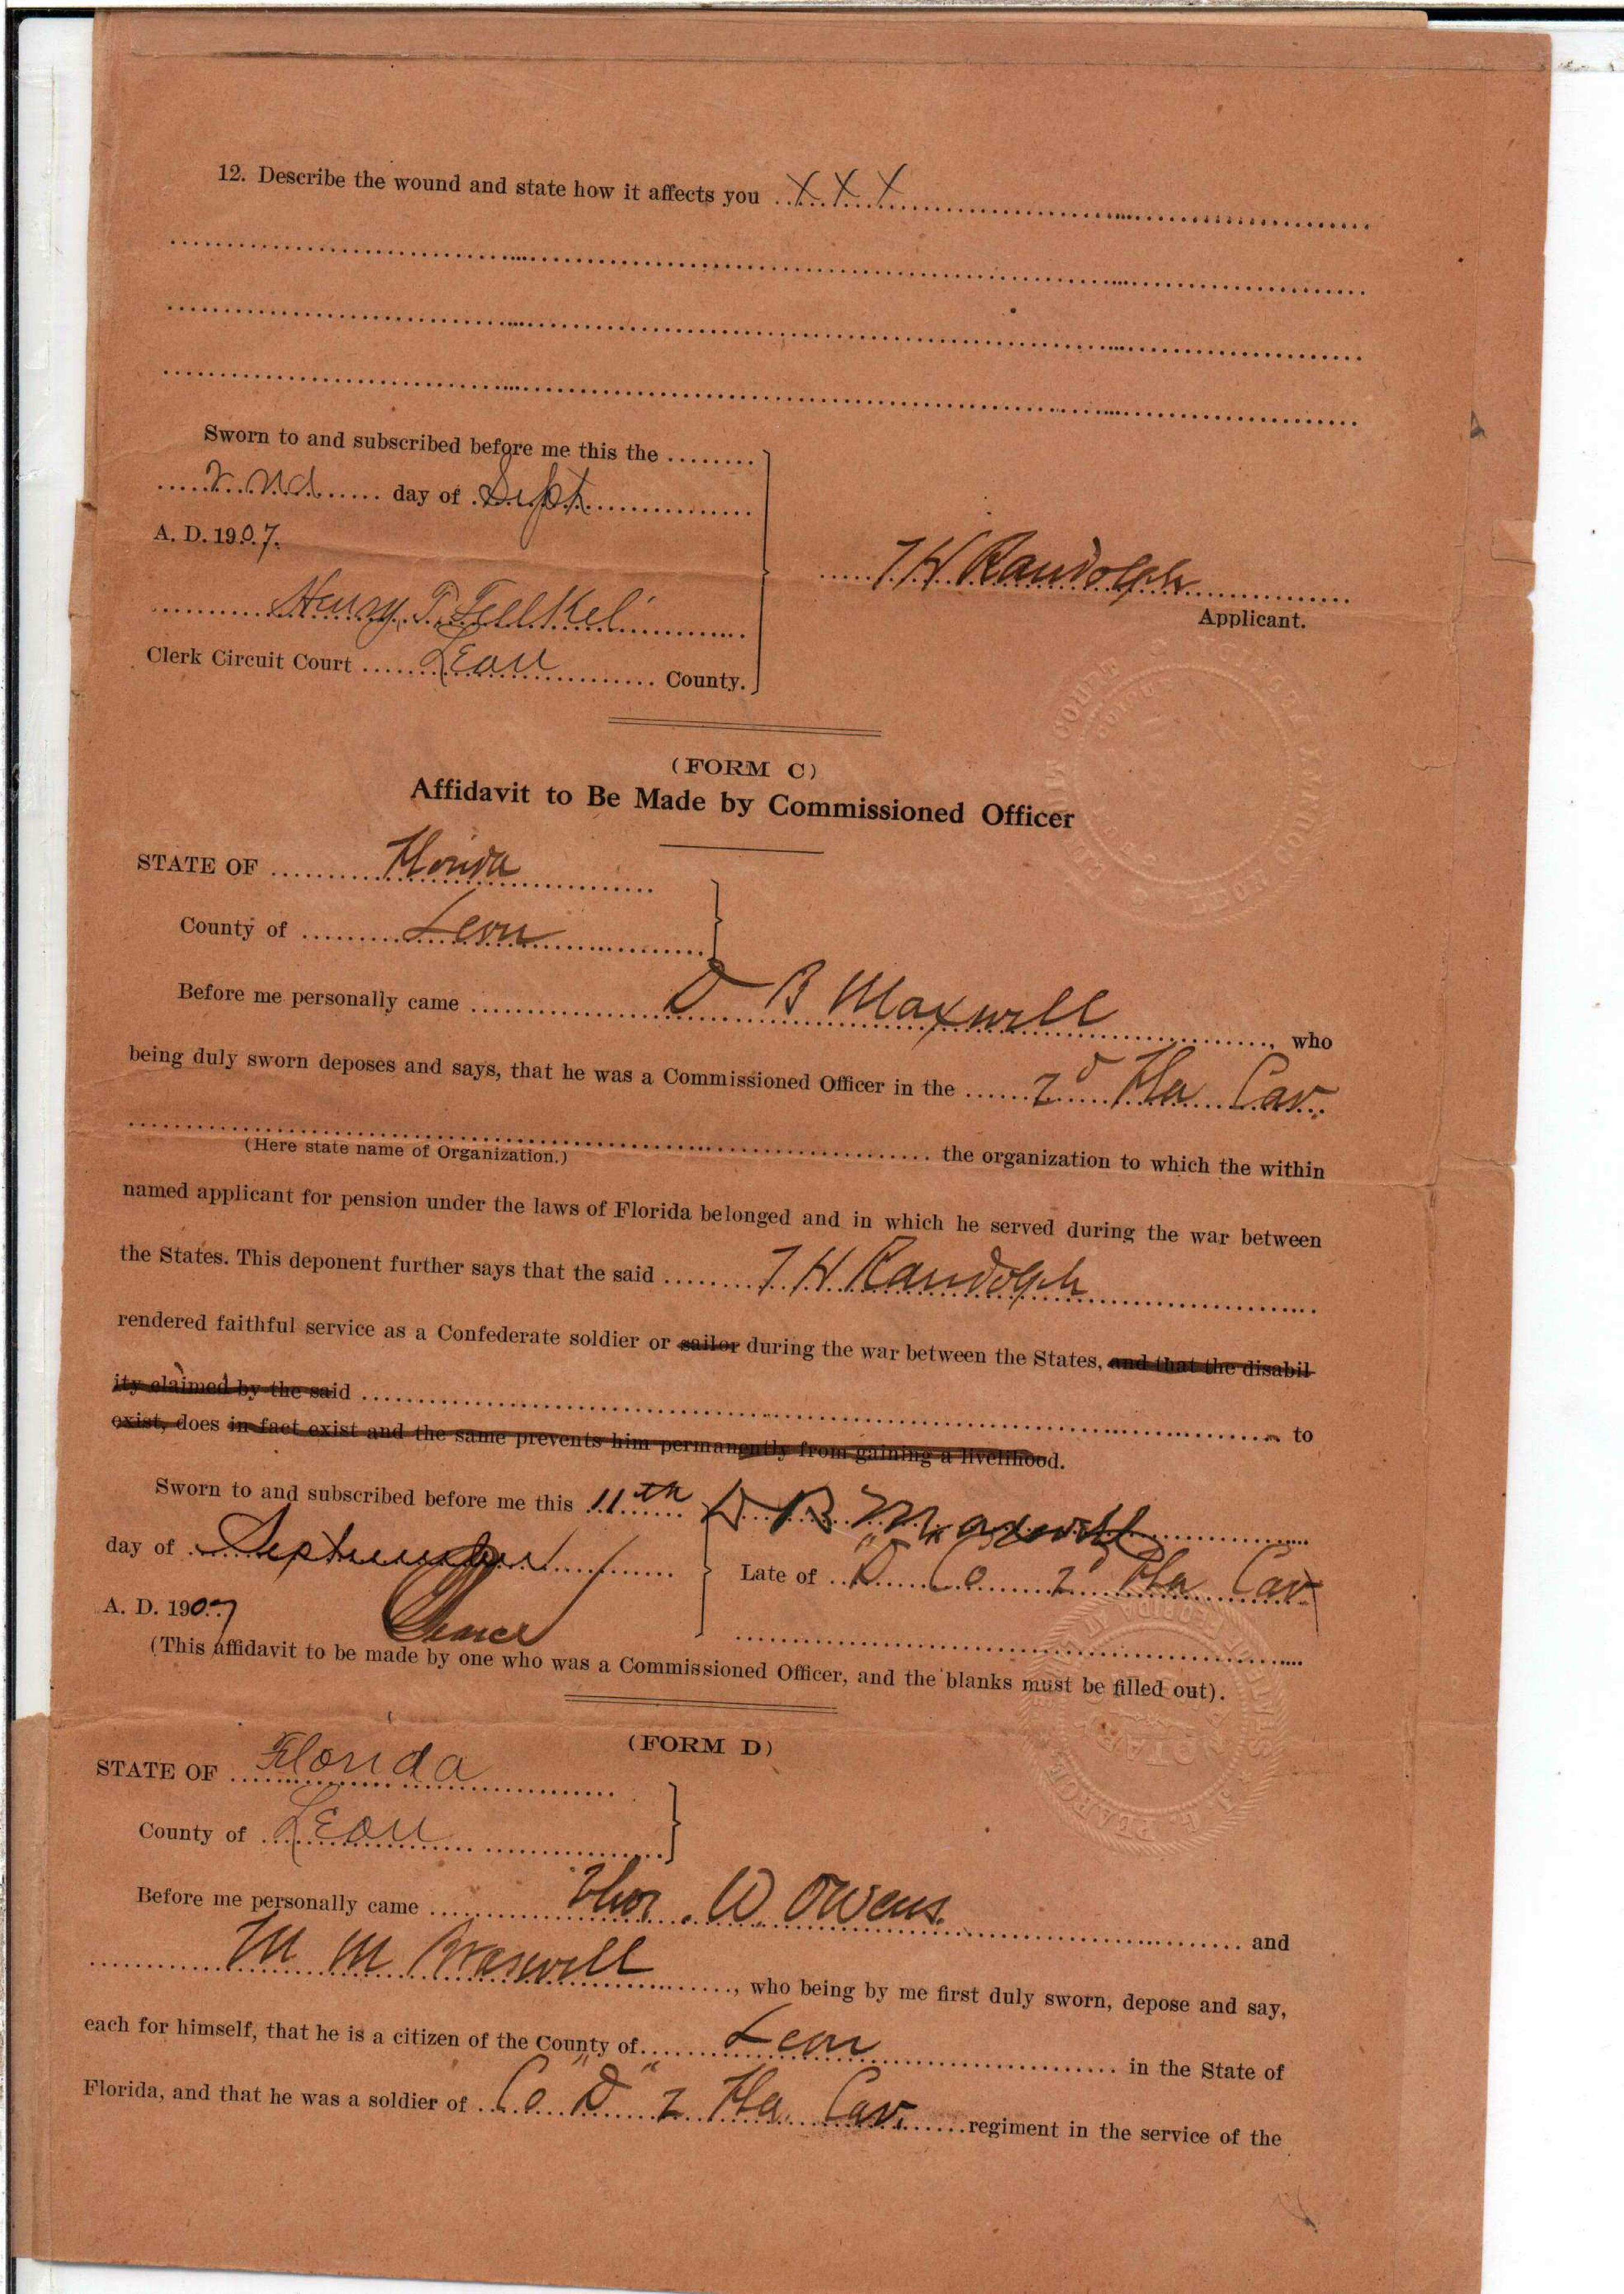 12. Describe the wound and state how it affects you X X X
Sworn to and subscribed before me this the
2nd day of Sept
A. D. 1907.
Henry T. Felkel
Clerk Circuit Court Leon County.
T H Randolph
Applicant.
(FORM C)
Affidavit to Be Made by Commissioned Officer
STATE OF Florida
County of Leon
Before me personally came D B Maxwell, who
being duly sworn deposes and says, that he was a Commissioned Officer in the 2d Fla Cav.
(Here state name of Organization.) the organization to which the within
named applicant for pension under the laws of Florida belonged and in which he served during the war between
the States. This deponent further says that the said T H Randolph
rendered faithful service as a Confederate soldier or sailor during the war between the States, and that the disabil-
ity claimed by the said to
exist, does in fact exist and the same prevents him permanently from gaining a livelihood.
Sworn to and subscribed before me this 11th D B Maxwell
day of September
Late of "D" Co 2d Fla Cav
A. D. 1907
(This affidavit to be made by one who was a Commissioned Officer, and the blanks must be filled out).
(FORM D)
STATE OF Florida
County of Leon
Before me personally came Thos. W. Owens and
M M Braswell, who being by me first duly sworn, depose and say,
each for himself, that he is a citizen of the County of Leon in the State of
Florida, and that he was a soldier of Co "D" 2 Fla. Cav. regiment in the service of the